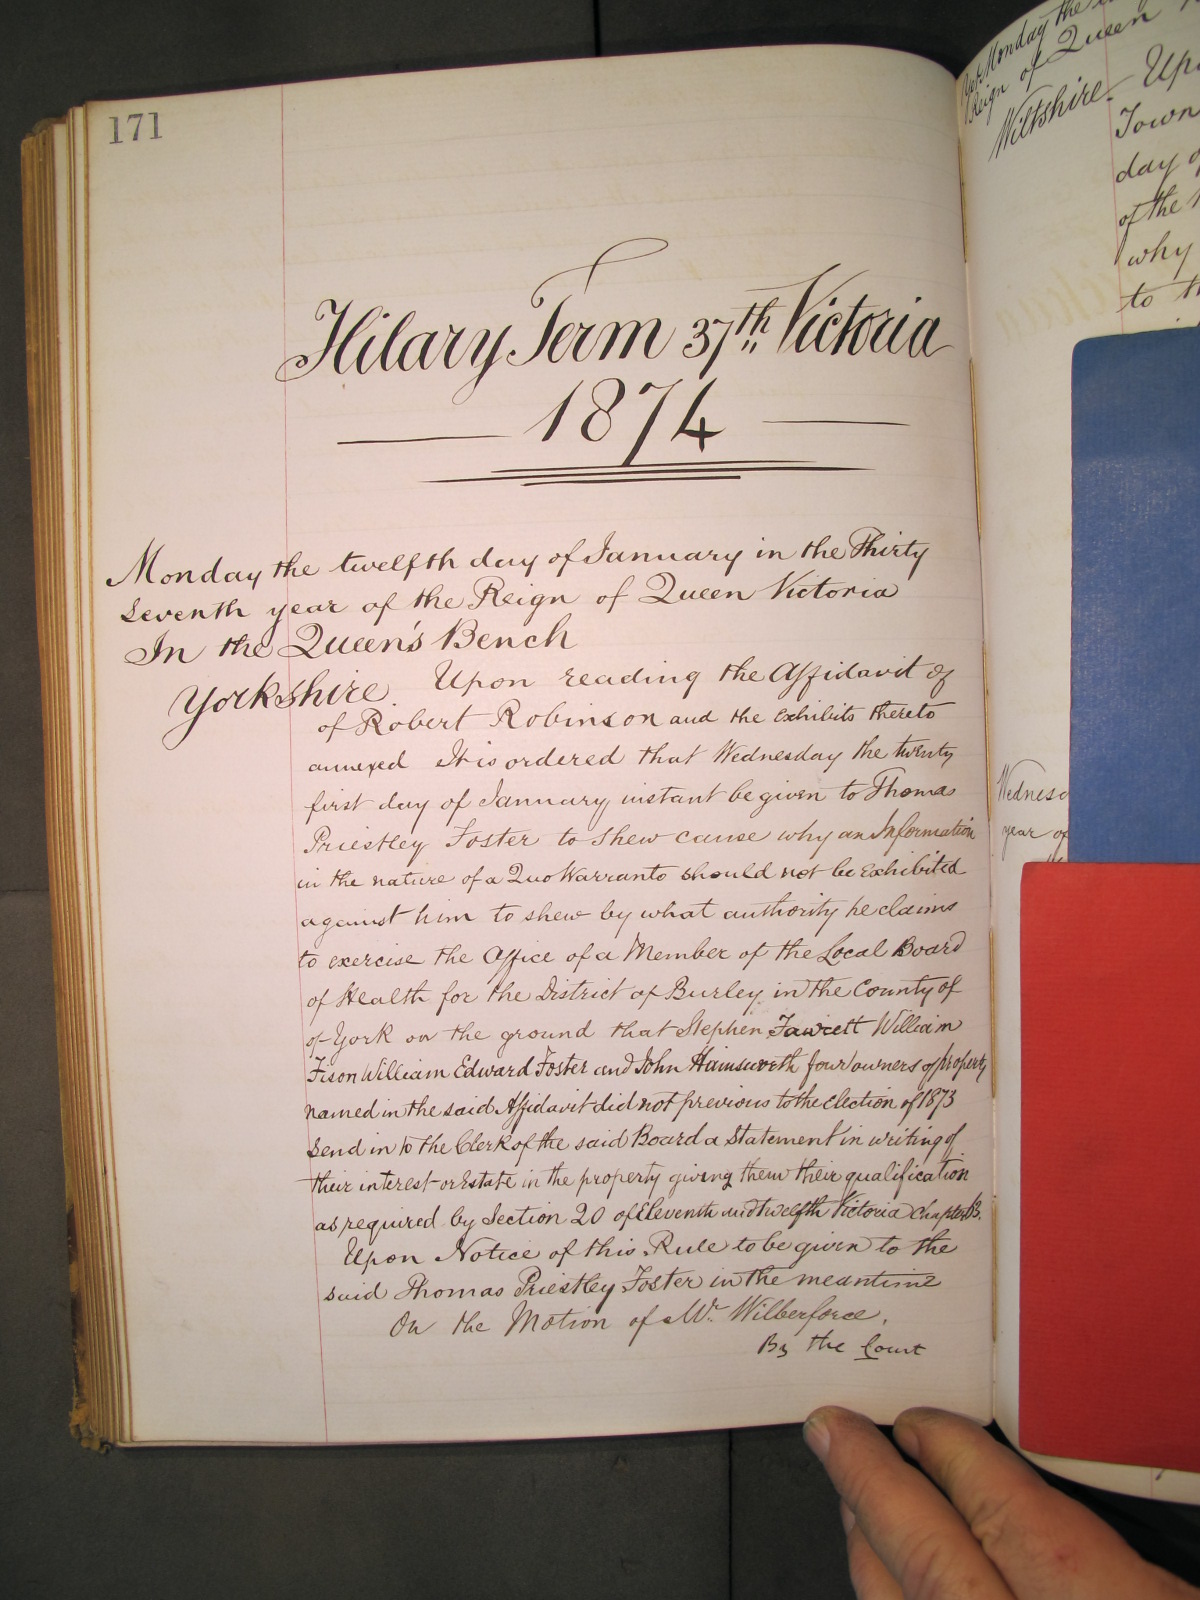 171
Hilary Term 37th Victoria
1874
Monday the twelfth day of January in the Thirty
Seventh year of the Reign of Queen Victoria
In the Queen's Bench
Yorkshire Upon reading the Affidavit of
of Robert Robinson and the exhibits thereto
annexed It is ordered that Wednesday the twenty
first day of January instant be given to Thomas
Priestley Foster to shew cause why an Information
in the nature of a Quo Warranto should not be exhibited
against him to shew by what authority he claims
to exercise the Office of a Member of the Local Board
of Health for the District of Burley in the County of
of York on the ground that Stephen Fawcett William
Fison William Edward Foster and John Hainsworth four owners of property
named in the said Affidavit did not previous to the election of 1873
Send in to the Clerk of the said Board a Statement in writing of
their interest or Estate in the property giving them their qualification
as required by Section 20 of Eleventh and twelfth Victoria Chapter 63.
Upon Notice of this Rule to be given to the
said Thomas Priestley Foster in the meantime
On the Motion of Mr. Wilberforce.
By the Court
Monday the
Reign of Queen
Wiltshire Upo
Town
day of
of the
why
to th
Wednesd
year of